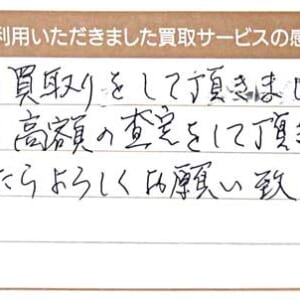 利用いただきました買取サービスの感
買取りをして頂きまし
高額の査定をして頂き
たらよろしくお願い致